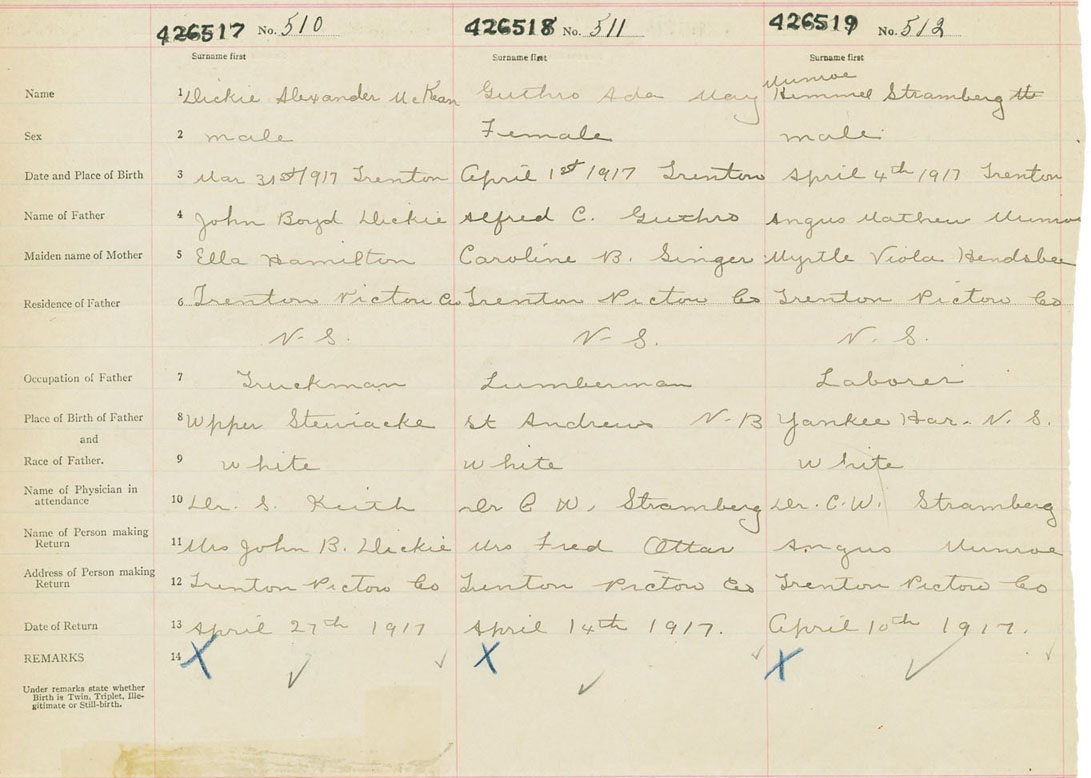 426517 No. 510 426518 No. 511 426519 No. 512
Surname first Surname first Surname first
Munroe
Name 1 Dickie Alexander McKean Guthro Ada May Himmel Stramberg
Sex 2 male Female male
Date and Place of Birth 3 Mar 31st 1917 Trenton April 1st 1917 Trenton April 4th 1917 Trenton
Name of Father 4 John Boyd Dickie Alfred C. Guthro Angus Mathew Munroe
Maiden name of Mother 5 Ella Hamilton Caroline B. Ginger Myrtle Viola Hendsbee
Residence of Father 6 Trenton Pictou Co Trenton Pictou Co Trenton Pictou Co
N. S. N. S. N. S.
Occupation of Father 7 Truckman Lumberman Laborer
Place of Birth of Father 8 Upper Stewiacke St Andrews N. B Yankee Har. N. S.
and
Race of Father. 9 White White White
Name of Physician in
attendance 10 Dr. S. Keith Dr C W. Stramberg Dr. C. W. Stramberg
Name of Person making
Return 11 Mrs John B. Dickie Mrs Fred Ottar Angus Munroe
Address of Person making
Return 12 Trenton Pictou Co Trenton Pictou Co Trenton Pictou Co
Date of Return 13 April 27th 1917 April 14th 1917. April 10th 1917.
REMARKS 14 X X X
Under remarks state whether
Birth is Twin, Triplet, Ille-
gitimate or Still-birth.